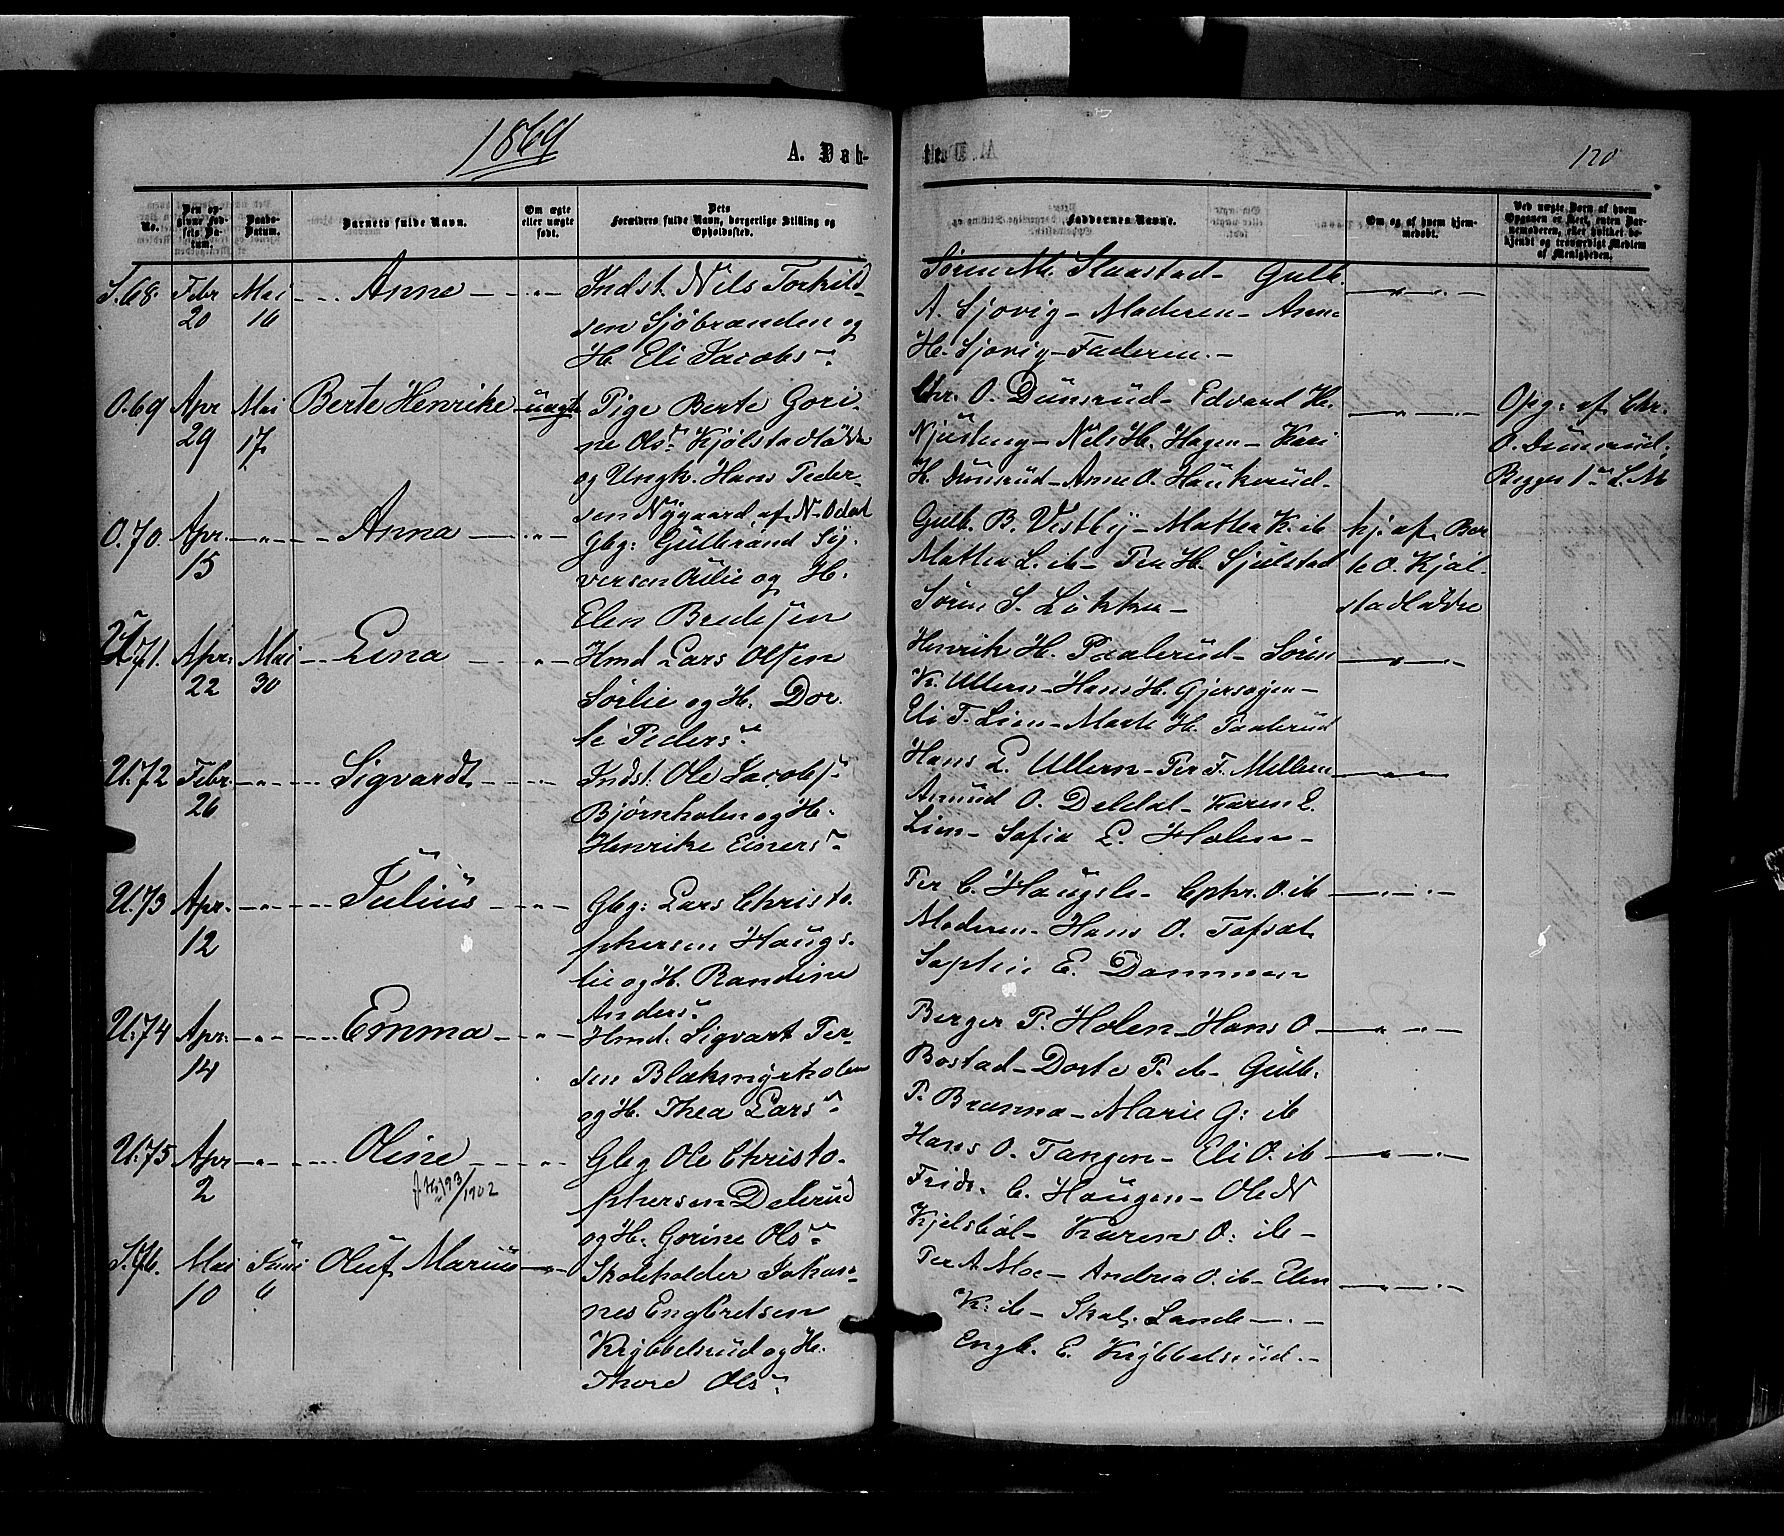 1869
A. Døb-
te.
120
No.
Den op-
givne Fød-
sels Da-
tum.
Daabs-
Datum.
Barnets fulde Navn.
Om ægte
eller uægte
født.
Dets
Forældres fulde Navn, borgerlige Stilling og
Opholdssted.
Faddernes Navne.
Om og af hvem hjem-
medøbt.
Ved uægte Børn af hvem
Opgaven er skeet, enten Bar-
nemoderen, eller hvilket be-
kjendt og troværdigt Medlem
af Menigheden.
S. 68. Febr 20 Mai 16 Anne - " -
Indst. Nils Torkild-
sen Sjøbranden og
H. Eli Jacobs
Søren M. Slaastad - Gulb.
A. Sjovig - Moderen - Anne
H. Sjovig - Faderen. -
O. 69 Apr 29 Mai 17. Berte Henrike - uægte
Pige Berte Gori-
ne Ols. Kjølstadløkke
og Ungk. Hans Peder-
sen Nygaard af N-Odal
Chr. O. Dunsrud - Edvard H.
- Nils H. Hagen - Kari
H. Dunsrud - Anne O. Haukerud -
Opg: af Chr.
O. Dunsrud;
Begges 1ste L. M
O. 70. Apr. 15 - " - Anna - " -
Gbg: Gulbrand Sy-
versen Aulie og H.
Elen Bredesen
Gulb. B. Vestby - Mathea K. ib
Mathea L. ib - Per H. Sjulstad
Søren S. Løkka -
hj. af Ber
te O. Kjøl-
stadløkke
U. 71. Apr. 22 Mai 30 Lina - " -
Hmd Lars Olsen
Sørlie og H. Dor-
te Peders
Henrik H. Paalerud - Søren
K. Ullern - Hans H. Gjersøyen -
Eli T. Lien - Marte H. Paalerud
U. 72 Febr. 26 - " - Sigvardt - " -
Indst. Ole Jacobs
Bjørnholen og H.
Henrike Einers
Hans L. Ullern - Per F. Mellem
Amund O. Deldal - Karen E.
Lien - Sofie L. Holen -
U. 73 Apr. 12 - " - Julius - " -
Gbg: Lars Christo-
phersen Haugs-
lie og H. Randine
Anders
Per C. Haugsle - Cphr. O. ib
Moderen - Hans O. Tofsat
Sophie E. Dammen
U. 74 Apr. 14 - " - Emma - " -
Hmd. Sigvart Per-
sen Blakmyrholen
og H. Thea Lars
Berger P. Holen - Hans O
Bostad - Dorte P. ib - Gulb.
P. Brænna - Marie G: ib
U. 75 Apr 2 - " - Oline - " -
193/1902
Gbg Ole Christo-
phersen Delerud
og H. Gorine Ols
Hans O. Tangen - Eli O. ib
Fridr. C. Haugen - Ole N
Kjelsbøl - Karen O: ib -
S. 76. Mai 10 Juni 6 Oluf Marius - " -
Skoleholder Johan-
nes Engbretsen
Krybbelsrud og H.
Thore Ols
Per A. Moe - Andrea O. ib - Elen
K: ib - Skol. Lande -
Engb. E. Krybbelsrud. -